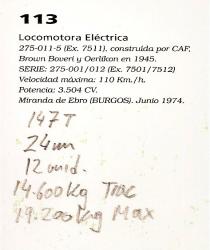 113
Locomotora Eléctrica
275-011-5 (Ex. 7511), construida por CAF,
Brown Boveri y Oerlikon en 1945.
SERIE: 275-001/012 (Ex. 7501/7512)
Velocidad máxima: 110 Km./h.
Potencia: 3.504 CV.
Miranda de Ebro (BURGOS). Junio 1974.
147T
24m
12 unid.
14.600Kg Trac
19.200Kg Max